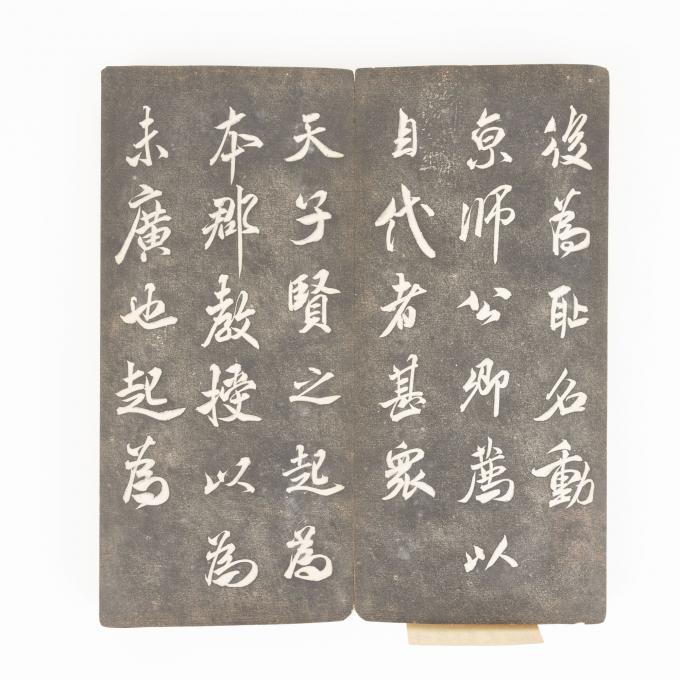 後為耻名動
京师公卿薦以
自代者甚衆
天子賢之起為
本郡教授以為
未廣也起為